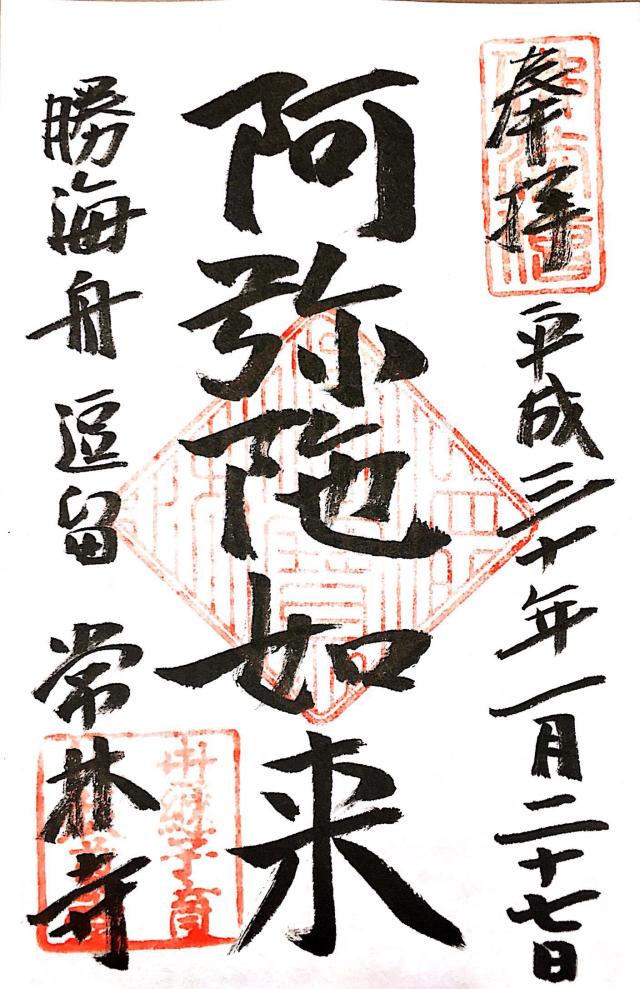 奉拝
平成三十年一月二十七日
阿弥陀如来
勝海舟逗留 常林寺